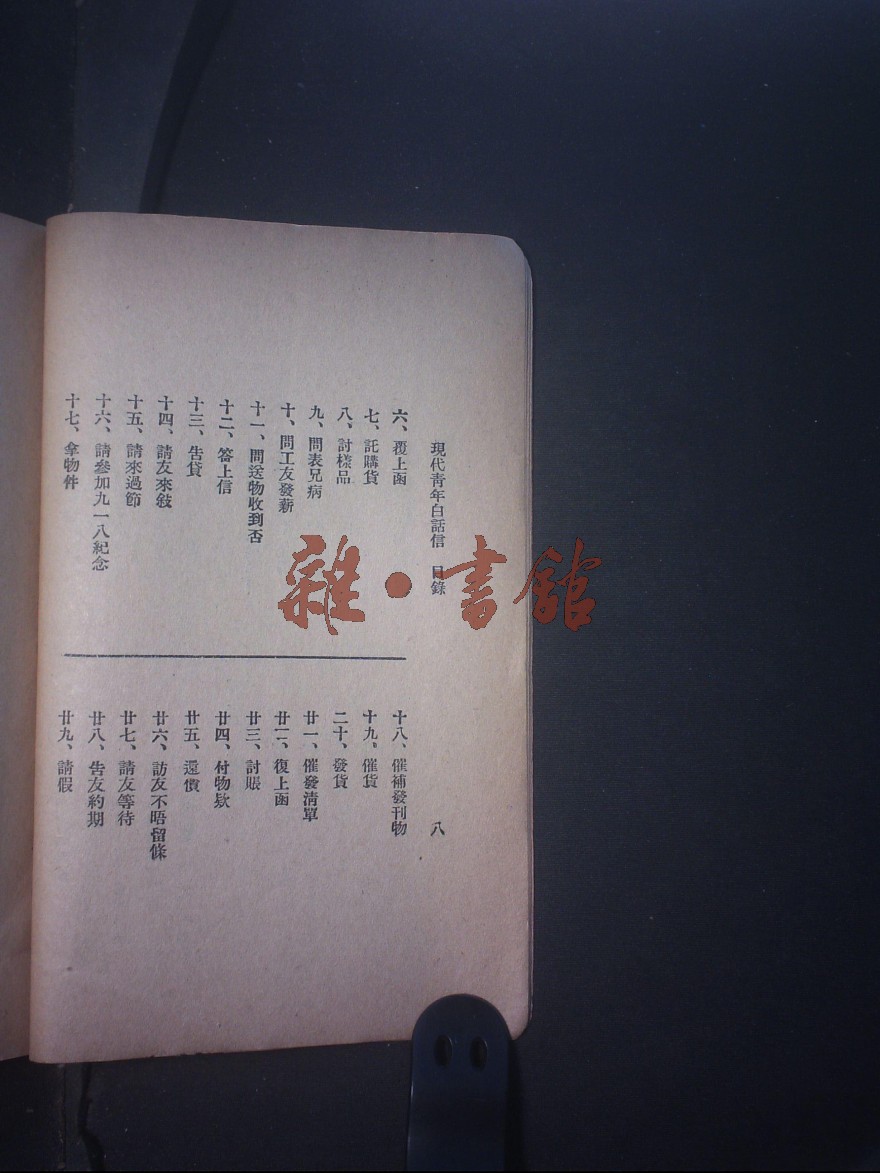 現代靑年白話信 目錄
八
六、覆上函
七、託購貨
八、討樣品
九、問表兄病
十、問工友發薪
十一、問送物收到否
十二、答上信
十三、告貸
十四、請友來敍
十五、請來過節
十六、請參加九一八紀念
十七、拿物件
十八、催補發刊物
十九、催貨
二十、發貨
廿一、催發清單
廿二、復上函
廿三、討賬
廿四、付物欵
廿五、還價
廿六、訪友不晤留條
廿七、請友等待
廿八、告友約期
廿九、請假
雜·書館